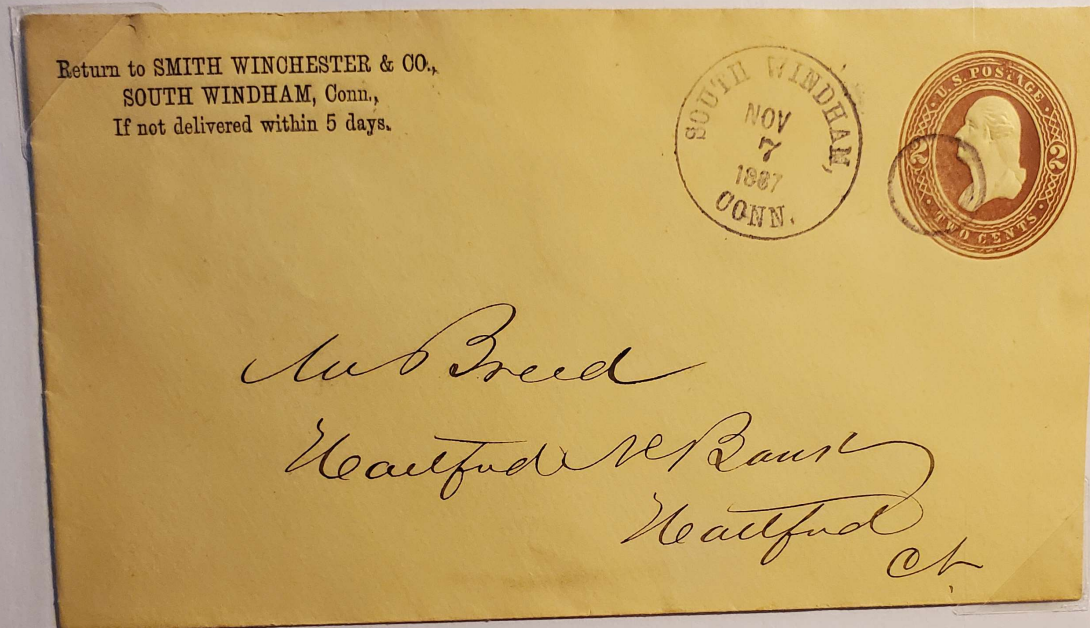 Return to SMITH WINCHESTER & CO.,
SOUTH WINDHAM, Conn.,
If not delivered within 5 days.
SOUTH WINDHAM,
NOV
7
1887
CONN.
U.S. POSTAGE
2 2
TWO CENTS
Breed
Hartford N Bank
Hartford
Ct.